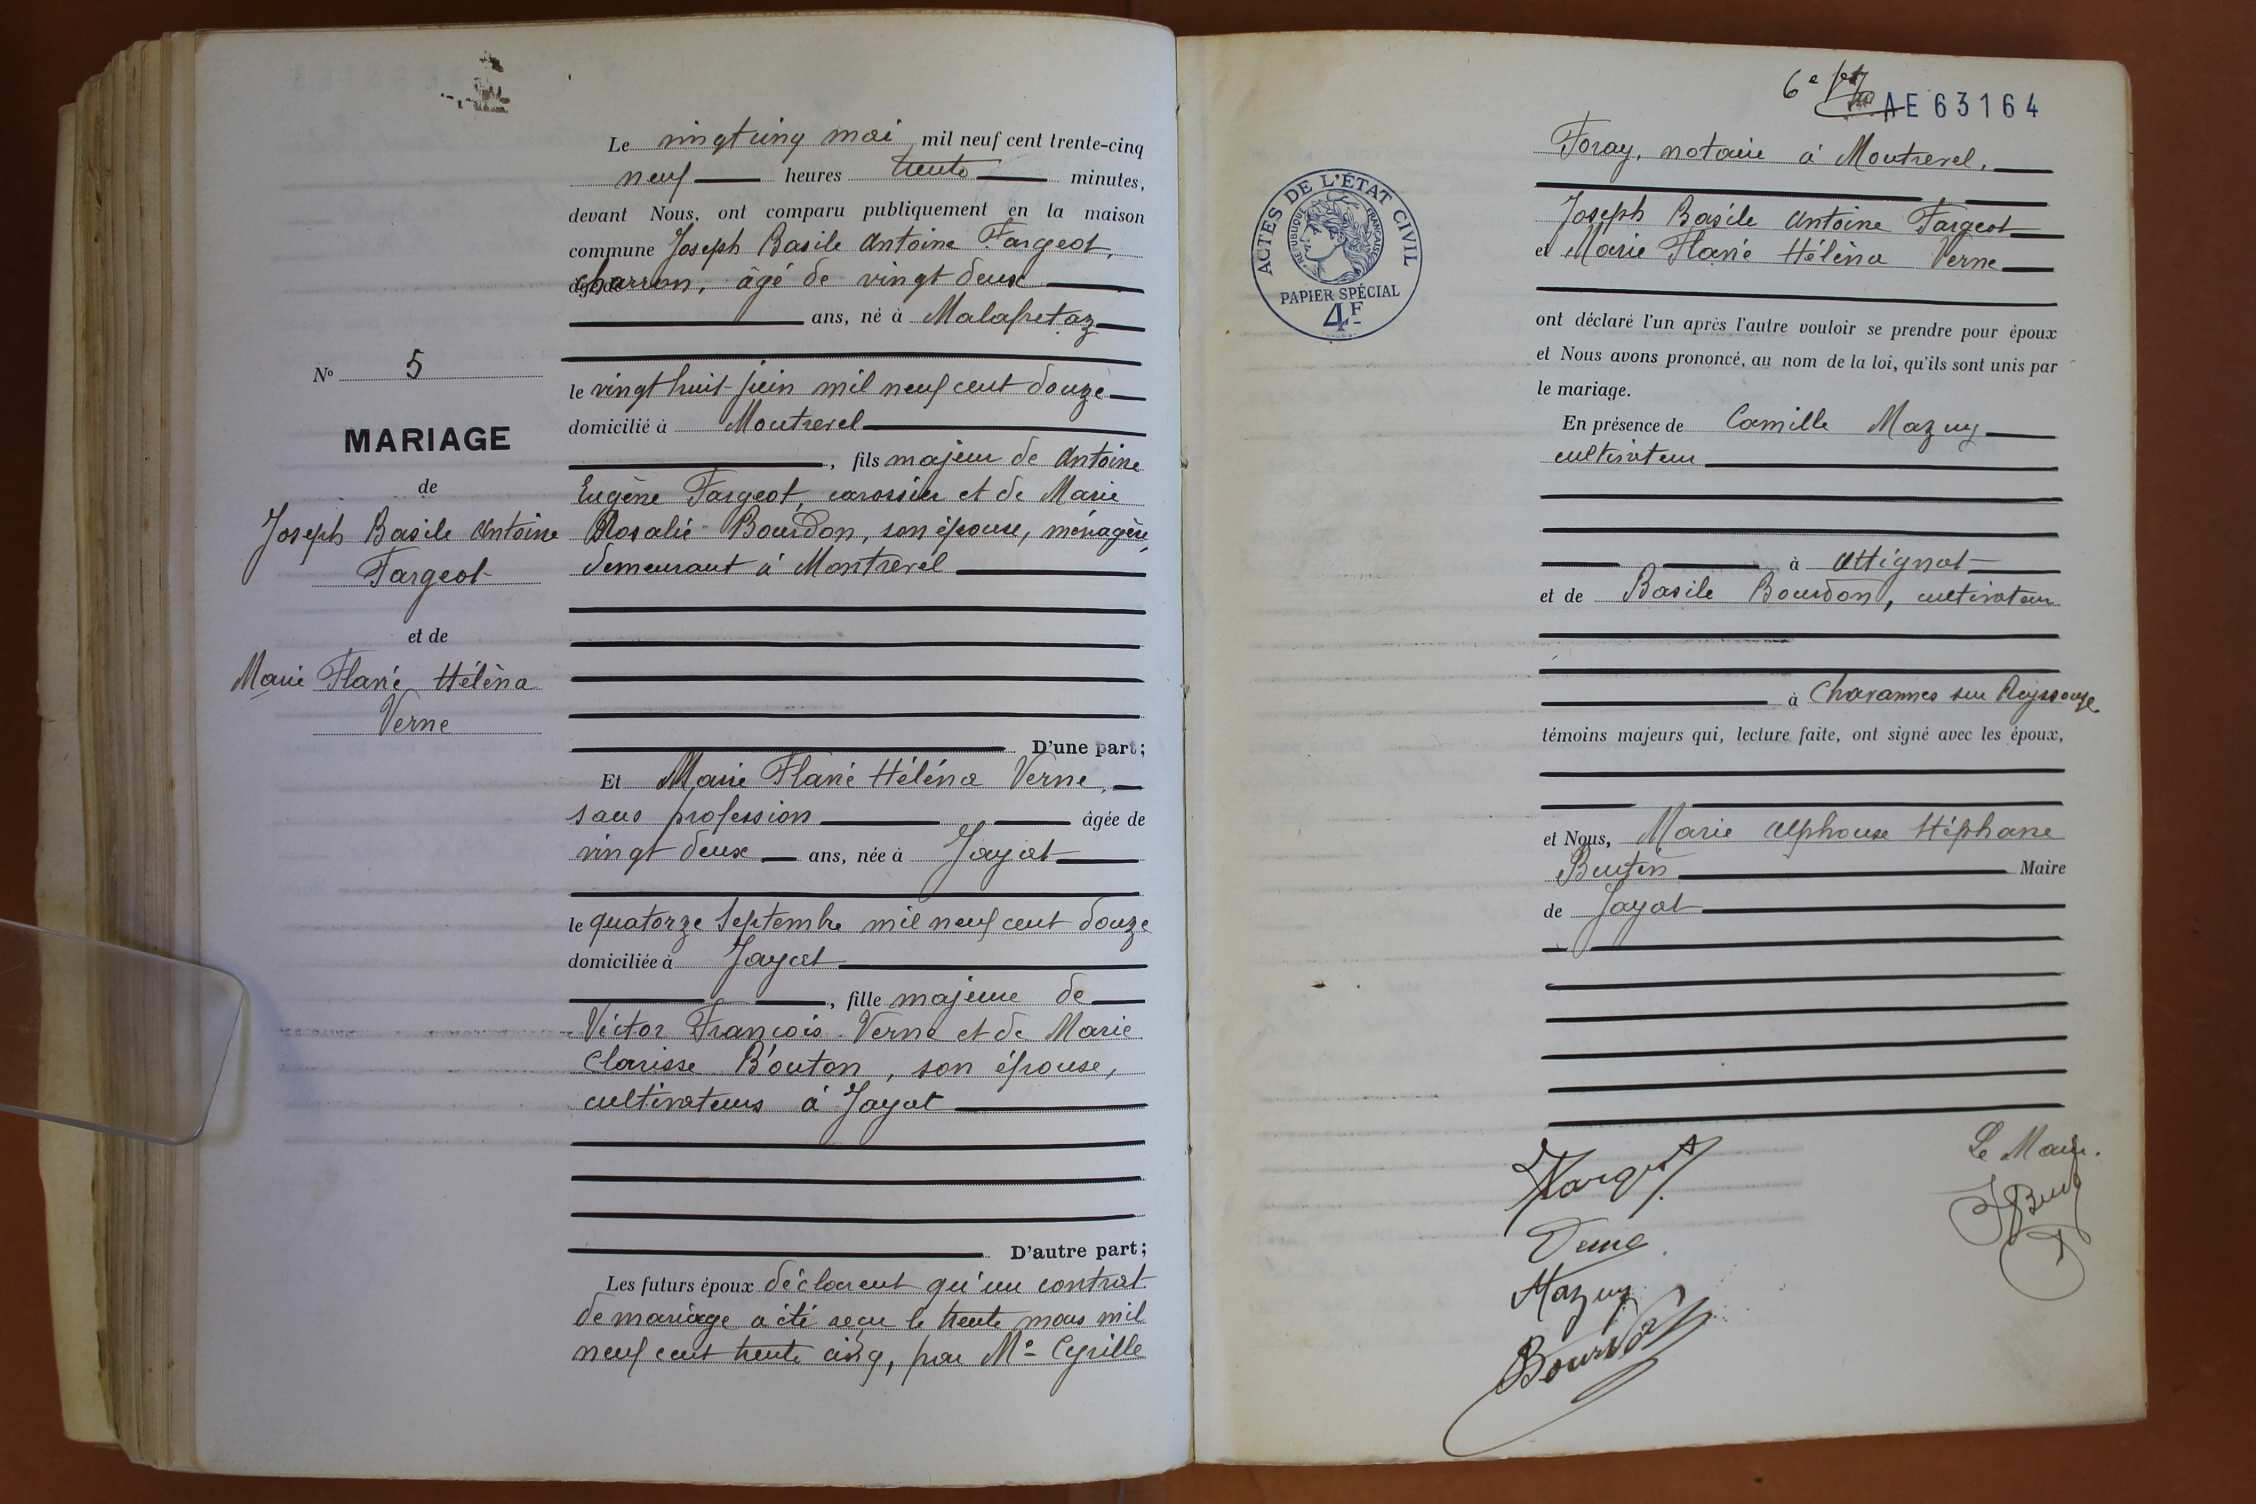 Le vingt cinq mai mil neuf cent trente-cinq
neuf heures trente minutes,
devant Nous, ont comparu publiquement en la maison
commune Joseph Basile Antoine Fargeot,
charron, âgé de vingt deux
ans, né à Malafretaz
le vingt huit juin mil neuf cent douze
domicilié à Montrevel
, fils majeur de Antoine
Eugène Fargeot, carossier et de Marie
Rosalie Bourdon, son épouse, ménagère,
demeurant à Montrevel
D'une part;
Et Marie Flavie Hélèna Verne,
sans profession âgée de
vingt deux ans, née à Jayat
le quatorze Septembre mil neuf cent douze
domiciliée à Jayat
, fille majeure de
Victor François Verne et de Marie
Clarisse Bouton, son épouse,
cultivateurs à Jayat
D'autre part;
Les futurs époux déclarent qu'un contrat
de mariage a été reçu le trente mars mil
neuf cent trente cinq, par Me Cyrille
No 5
MARIAGE
de
Joseph Basile Antoine
Fargeot
et de
Marie Flavie Hélèna
Verne
6e
AE 63164
ACTES DE L'ÉTAT CIVIL
RÉPUBLIQUE FRANÇAISE
PAPIER SPÉCIAL
4F
Foray, notaire à Montrevel.
Joseph Basile Antoine Fargeot
et Marie Flavie Hélèna Verne
ont déclaré l'un après l'autre vouloir se prendre pour époux
et Nous avons prononcé, au nom de la loi, qu'ils sont unis par
le mariage.
En présence de Camille Mazuy
cultivateur
à Attignat
et de Basile Bourdon, cultivateur
à Chavannes sur Reyssouze
témoins majeurs qui, lecture faite, ont signé avec les époux,
et Nous, Marie Alphonse Stéphane
Maire
de Jayat
Le Maire.
Fargeot
Verne
Mazuy
Bourdon